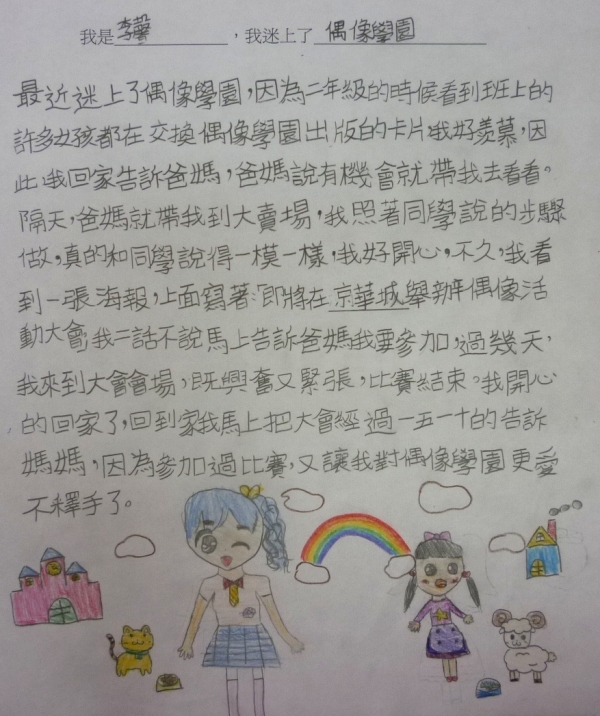 我是李馨，我迷上了偶像學園
最近迷上了偶像學園，因為二年級的時候看到班上的
許多女孩都在交換偶像學園出版的卡片我好羨慕，因
此我回家告訴爸媽，爸媽說有機會就帶我去看看。
隔天，爸媽就帶我到大賣場，我照著同學說的步驟
做，真的和同學說得一模一樣，我好開心，不久，我看
到一張海報，上面寫著：即將在京華城舉辦偶像活
動大會，我二話不說馬上告訴爸媽我要參加，過幾天，
我來到大會會場，既興奮又緊張，比賽結束。我開心
的回家了，回到家我馬上把大會經過一五一十的告訴
媽媽，因為參加過比賽，又讓我對偶像學園更愛
不釋手了。